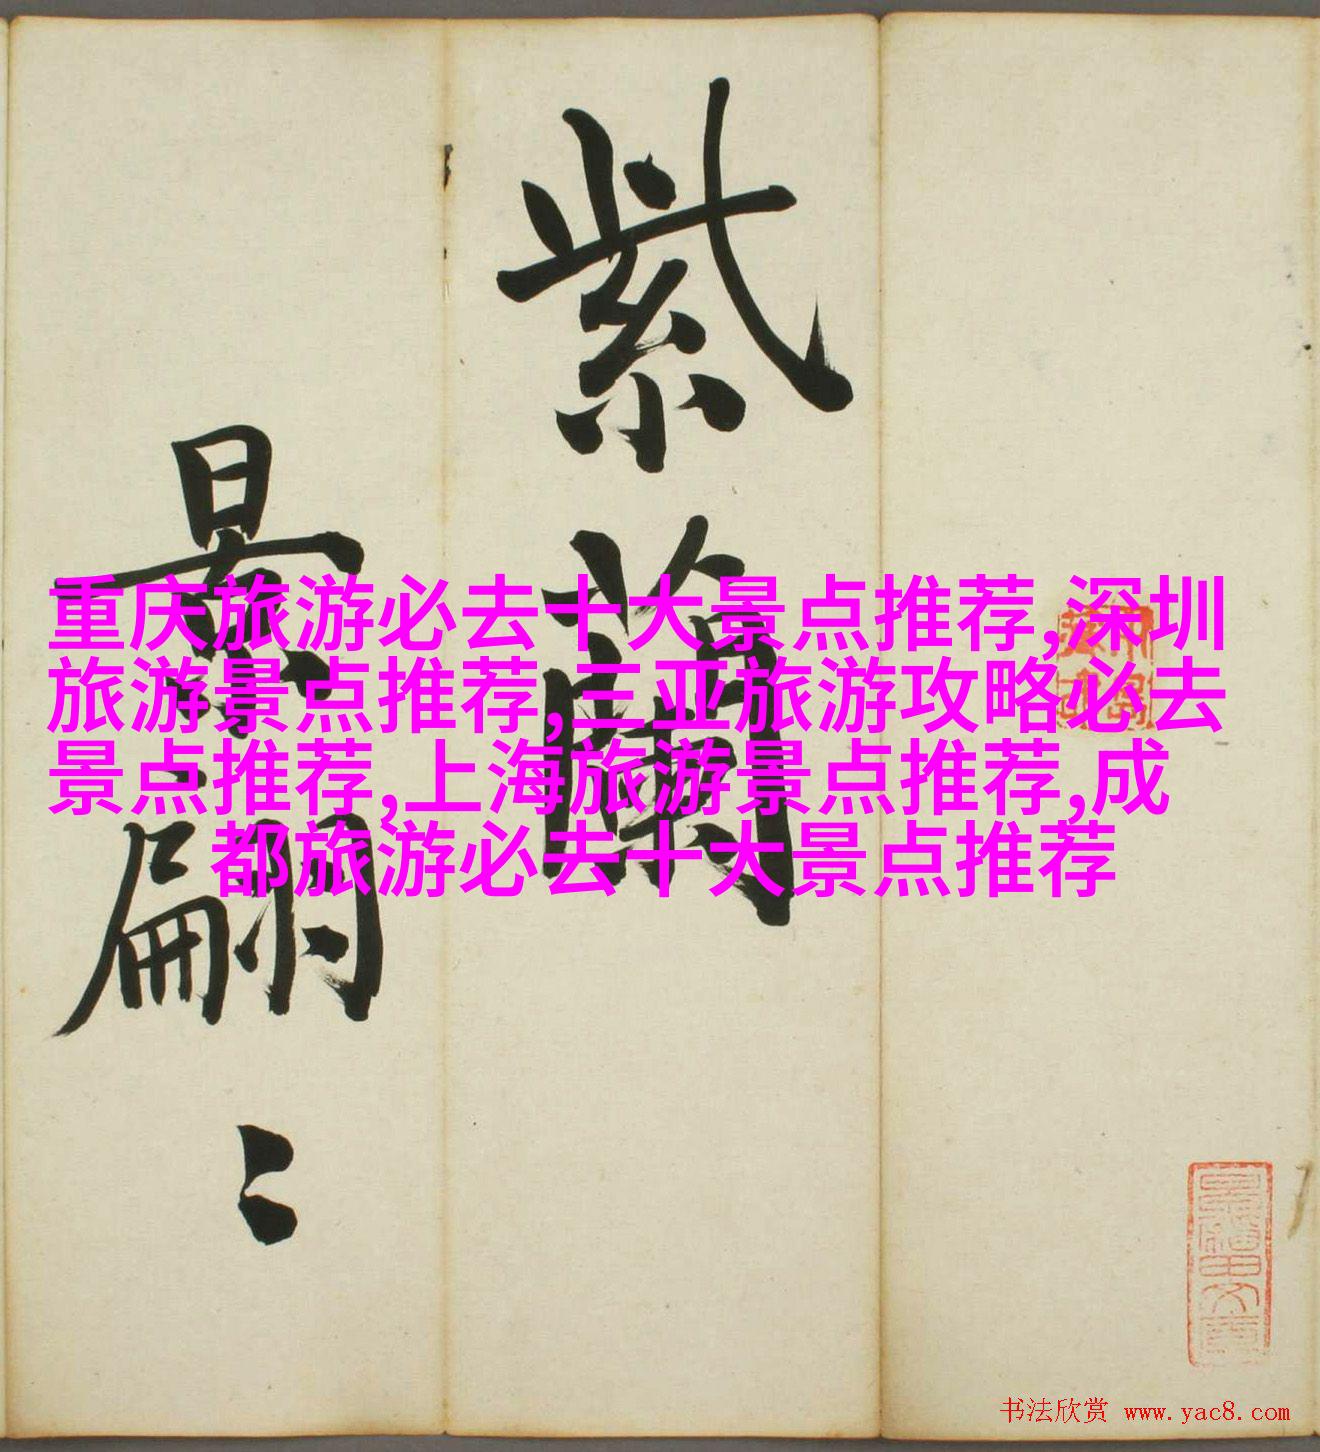 紫蘭
景翩〻
重庆旅游必去十大景点推荐,深圳
旅游景点推荐,三亚旅游攻略必去
景点推荐,上海旅游景点推荐,成
都旅游必去十大景点推荐
书法欣赏 www.yac8.com